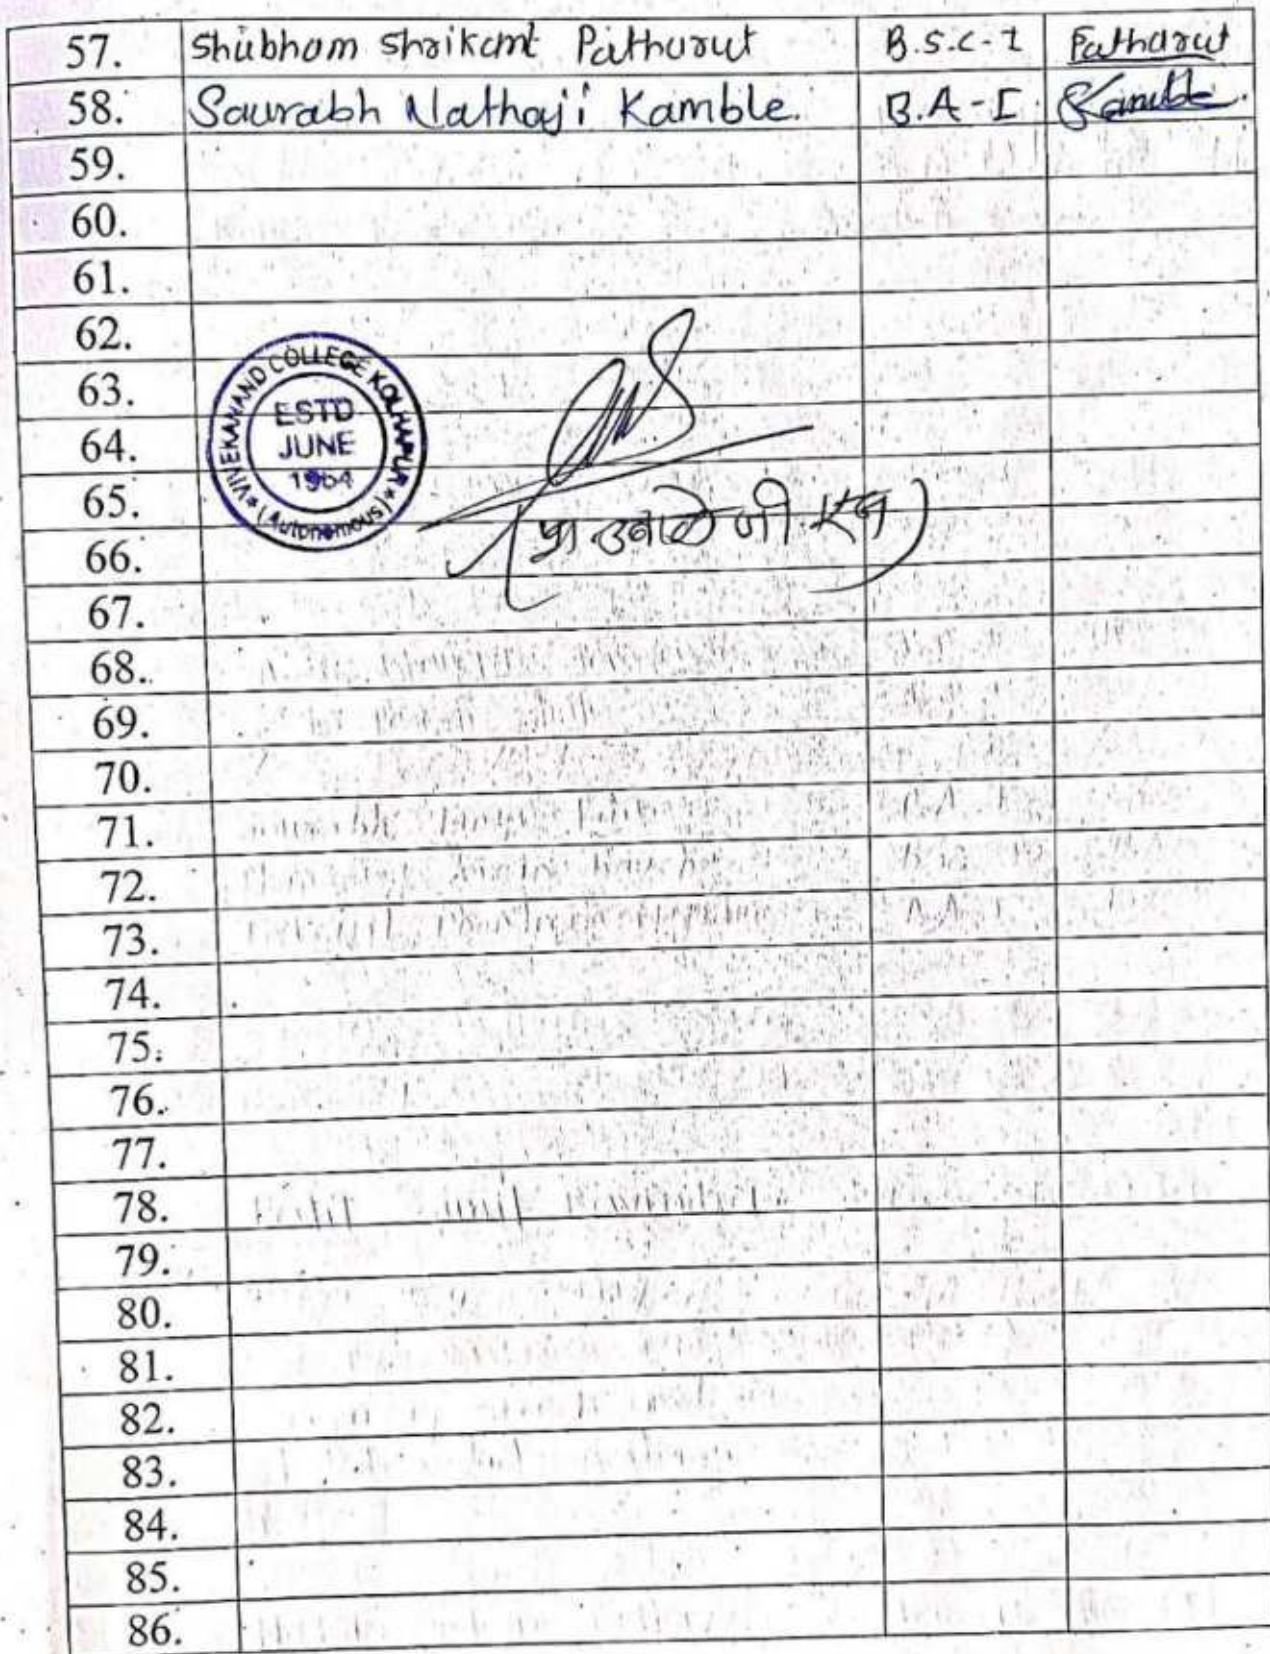 57. Shubham Shrikant Patharut B.S.C-I Patharut
58. Saurabh Nathaji Kamble. B.A-I SKamble.
59.
60.
61.
62.
63.
64.
65.
66.
67.
68.
69.
70.
71.
72.
73.
74.
75.
76.
77.
78.
79.
80.
81.
82.
83.
84.
85.
86.
VIVEKANAND COLLEGE KOLHAPUR * (Autonomous) *
ESTD
JUNE
1964
(प्रा उबाळे जी. एन)